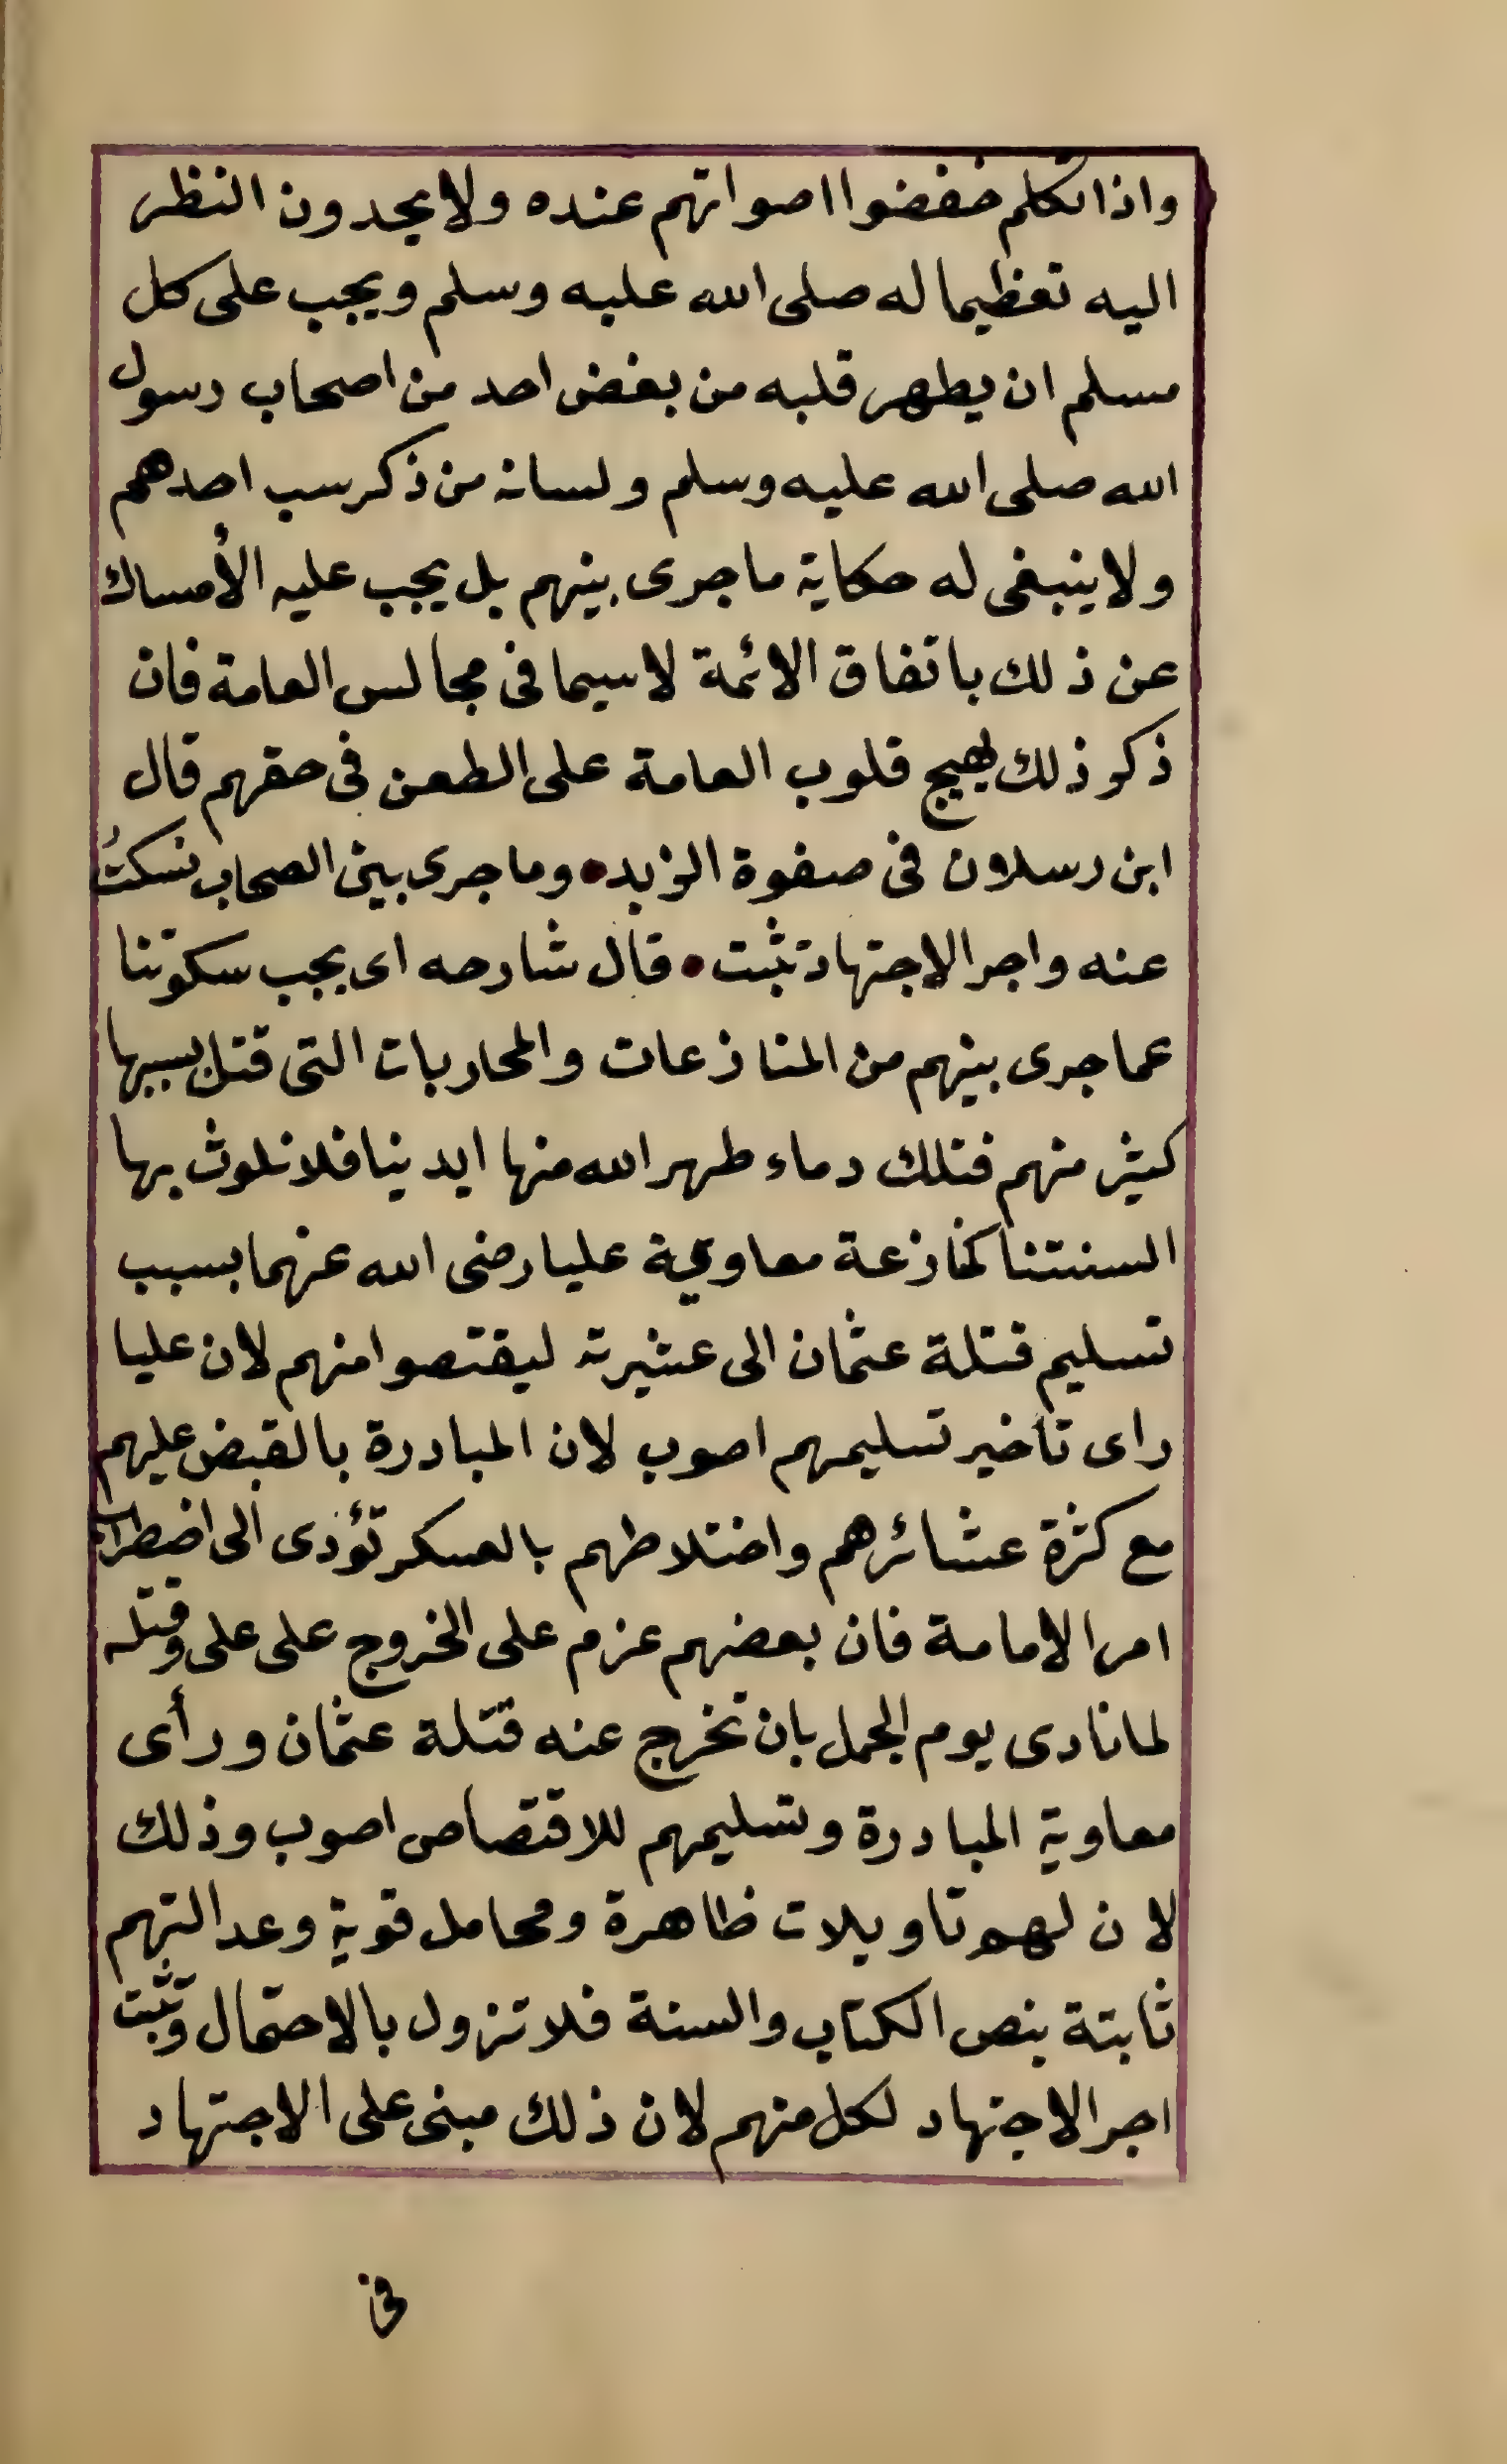 واذا تكلم خفضوا اصواتهم عنده ولا يحدون النظر
اليه تعظيما له صلى الله عليه وسلم ويجب على كل
مسلم ان يطهر قلبه من بغض احد من اصحاب رسول
الله صلى الله عليه وسلم ولسانه من ذكر سب احدهم
ولا ينبغى له حكاية ما جرى بينهم بل يجب عليه الأمساك
عن ذلك باتفاق الائمة لا سيما فى مجالس العامة فان
ذكر ذلك يهيج قلوب العامة على الطعن فى حقهم قال
ابن رسلان فى صفوة الزبد • وما جرى بين الصحاب نسكتُ
عنه واجر الاجتهاد تثبت • قال شارحه اى يجب سكوتنا
عما جرى بينهم من المنازعات والمحاربات التى قتل بسببها
كثير منهم فتلك دماء طهر الله منها ايدينا فلا نلوث بها
السنتنا كمنازعة معاوية عليا رضى الله عنهما بسبب
تسليم قتلة عثمان الى عشيرته ليقتصوا منهم لان عليا
راى تأخير تسليمهم اصوب لان المبادرة بالقبض عليهم
مع كثرة عشائرهم واختلاطهم بالعسكر تؤدى الى اضطراب
امر الامامة فان بعضهم عزم على الخروج على على وقتله
لما نادى يوم الجمل بان تخرج عنه قتلة عثمان ورأى
معاوية المبادرة وتسليمهم للاقتصاص اصوب وذلك
لان لهم تاويلات ظاهرة ومحامل قوية وعدالتهم
ثابتة بنص الكتاب والسنة فلا تزول بالاحتمال وتثبت
اجر الاجتهاد لكل منهم لان ذلك مبنى على الاجتهاد
فى